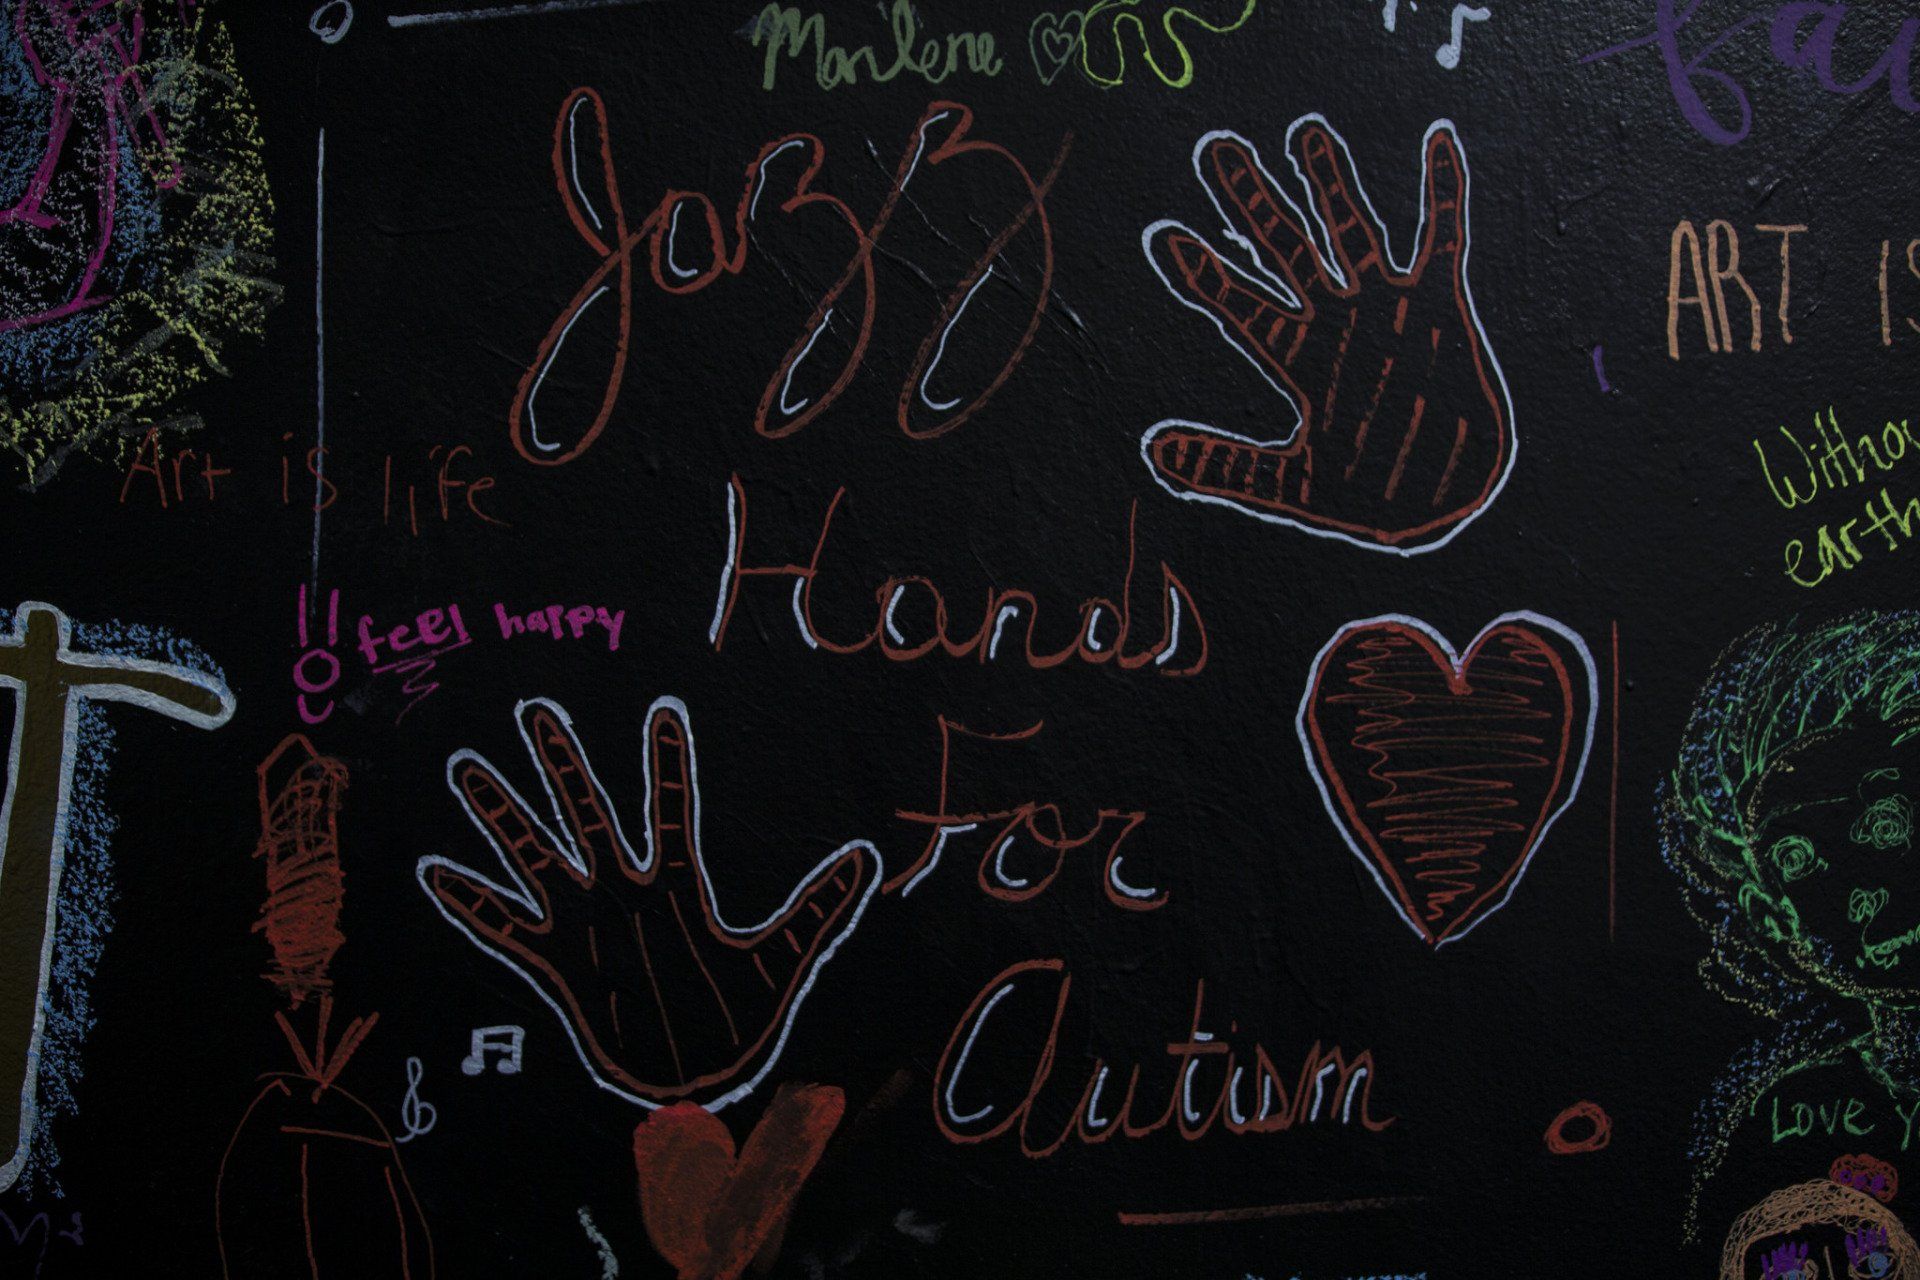 Marilene
Jazz
ART IS
Art is life
Hands
feel happy
For
Autism
earth
LOVE